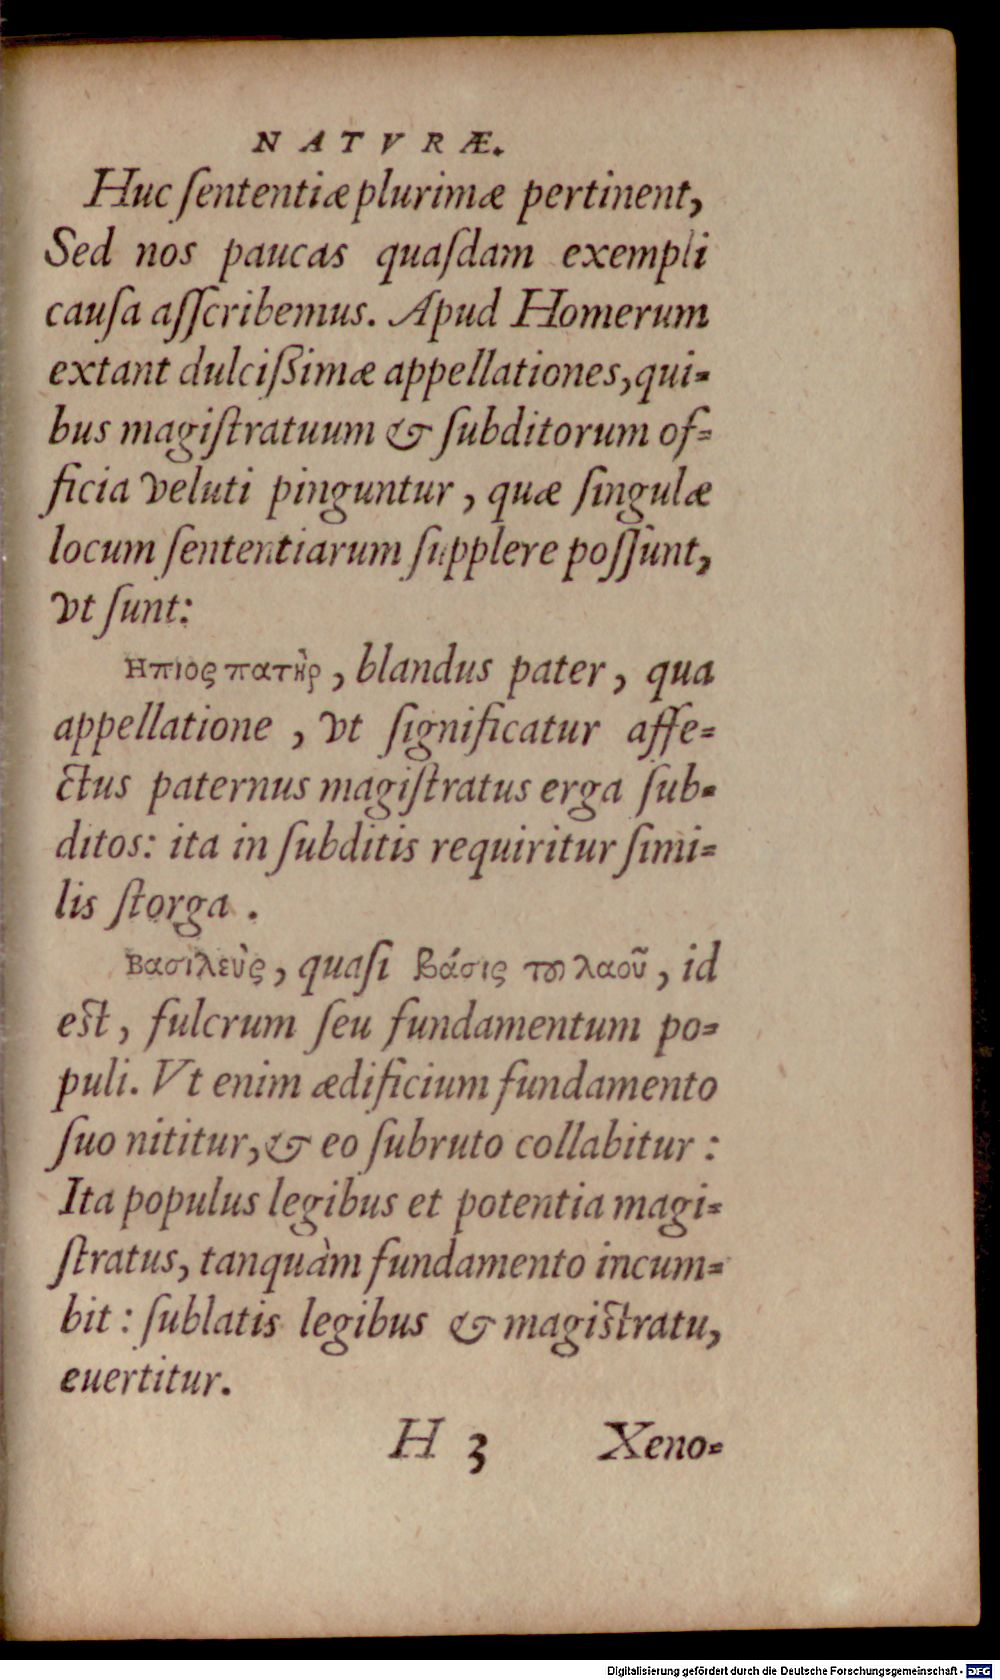 NATVRÆ.
Huc ſententiæ plurimæ pertinent,
Sed nos paucas quaſdam exempli
cauſa aſſcribemus. Apud Homerum
extant dulciſsimæ appellationes, qui-
bus magiſtratuum & ſubditorum of-
ficia veluti pinguntur, quæ ſingulæ
locum ſententiarum ſupplere poſſunt,
vt ſunt:
Ηπιος πατὴρ, blandus pater, qua
appellatione, vt ſignificatur affe-
ctus paternus magiſtratus erga ſub-
ditos: ita in ſubditis requiritur ſimi-
lis ſtorga.
Βασιλεὺς, quaſi βάσις τοῦ λαοῦ, id
eſt, fulcrum ſeu fundamentum po-
puli. Vt enim ædificium fundamento
ſuo nititur, & eo ſubruto collabitur:
Ita populus legibus et potentia magi-
ſtratus, tanquàm fundamento incum-
bit: ſublatis legibus & magiſtratu,
euertitur.
H 3 Xeno-
Digitalisierung gefördert durch die Deutsche Forschungsgemeinschaft - DFG